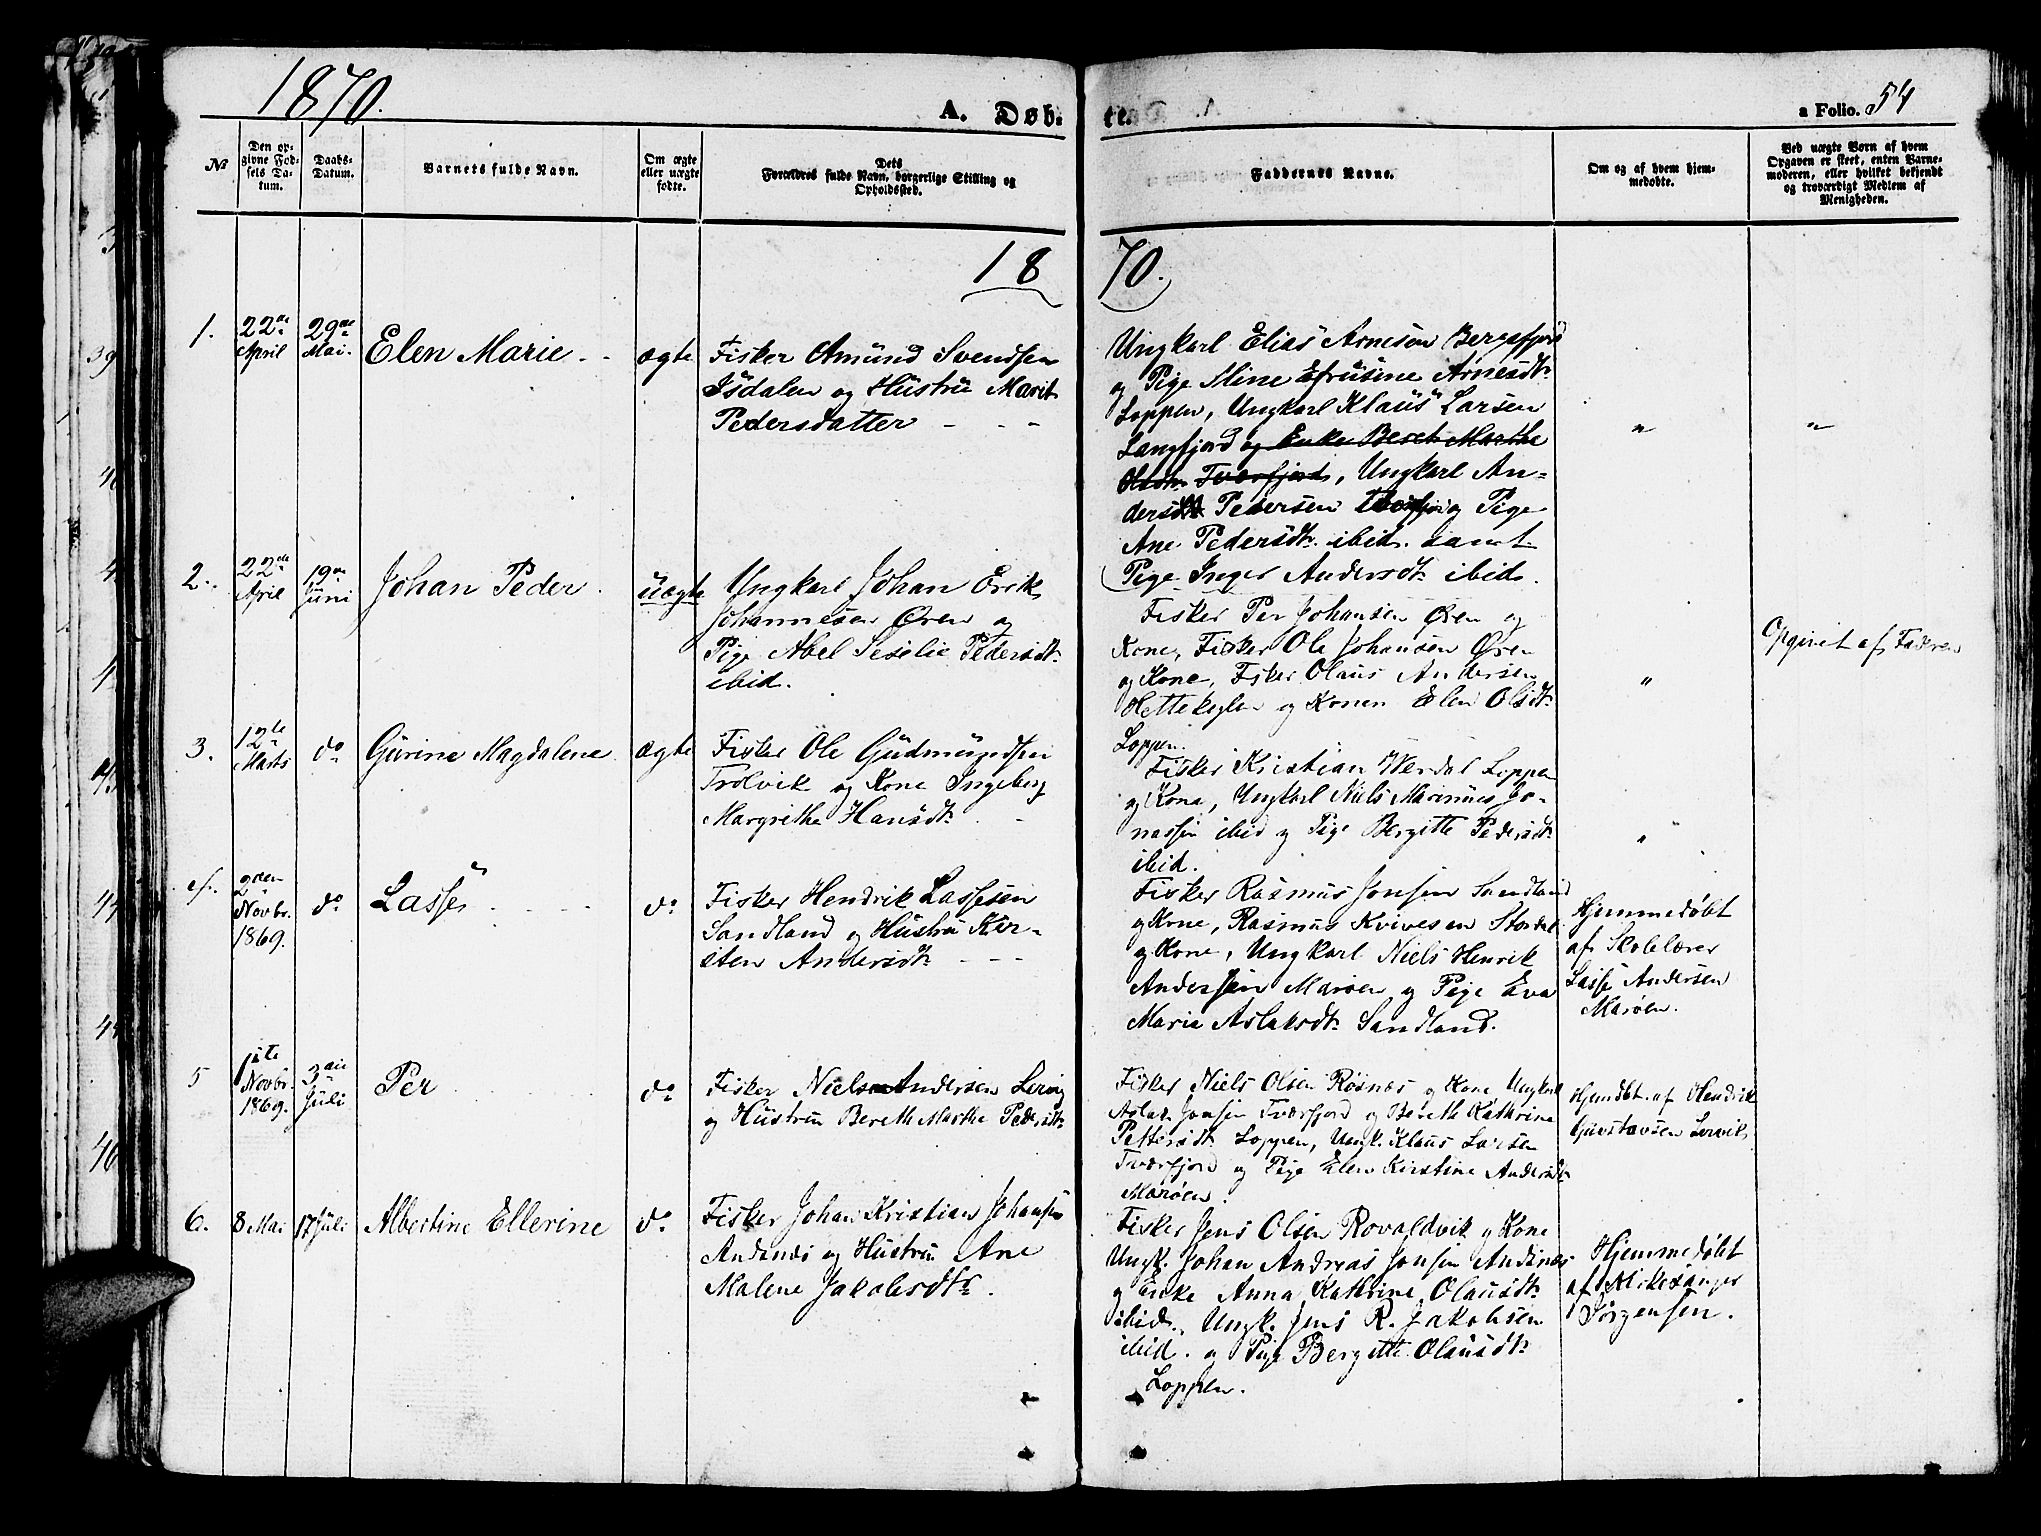 1870.
A. Døb-
te.
a Folio. 54
№
Den op-
givne Fød-
sels Da-
tum.
Daabs-
Datum.
Barnets fulde Navn.
Om ægte
eller uægte
fødte.
Dets
Forældres fulde Navn, borgerlige Stilling og
Opholdssted.
Faddernes Navne.
Om og af hvem hjem-
medøbte.
Ved uægte Børn af hvem
Opgaven er skeet, enten Barne-
moderen, eller hvilket bekjendt
og troværdigt Medlem af
Menigheden.
18
70.
1.
22de
April
29de
Mai.
Elen Marie
ægte
Fisker Amund Svendsen
Isdalen og Hustru Marit
Pedersdatter
Ungkarl Elias Arnesen Bergsfjord
og Pige Mine Efrusine Arnesdtr
Loppen, Ungkarl Klaus Larsen
Langfjord og Enke Beret Marthe
Olsdtr Tværfjord, Ungkarl An-
ders Pedersen og Pige
Ane Pedersdtr. ibid. samt
Pige Inger Andersdtr ibid.
"
"
2.
22de
April
19de
Juni
Johan Peder
uægte
Ungkarl Johan Erik
Johannesen Øren og
Pige Abel Seselie Pedersdtr
ibid.
Fisker Per Johansen Øren og
Kone, Fisker Ole Johansen Øren
og Kone, Fisker Olaus Andersen
og Konen Elen Olsdtr
Loppen.
"
Opgivet af Faderen
3.
12te
Marts
do
Gurine Magdalene
ægte
Fisker Ole Gudmundsen
Trolvik og Kone Ingeborg
Margrethe Hansdtr.
Fisker Kristian Werdal Loppen
og Kone, Ungkarl Niels Marinus Jo-
nassen ibid og Pige Bergitte Pedersdtr
ibid.
"
4.
2den
Novbr.
1869.
do
Lasse
do
Fisker Hendrik Lassesen
Sandland og Hustru Ker-
sten Andersdtr
Fisker Rasmus Jonsen Sandland
og Kone, Rasmus Kvivesen
og Kone, Ungkarl Niels Henrik
Andersen Marøen og Pige Eva
Maria Aslaksdtr Sandland.
Hjemmedøbt
af Skolelærer
Lasse Andersen
Marøen.
5
1ste
Novbr.
1869.
3die
Juli
Per
do
Fisker Niels Andersen Lervig
og Hustru Bereth Marthe Pedersdtr
Fisker Niels Olsen Røsnæs og Kone Ungkarl
Aslak Jonsen Tværfjord og Bereth Kathrine
Pettersdtr Loppen, Ungk. Klaus Larsen
Tværfjord og Pige Elen Kirstine Andersdtr
Marøen.
Hjemdbt. af Hendrik
Gustavsen Lervik
6.
8 Mai
17 Juli
Albertine Ellerine
do
Fisker Johan Kristian Johansen
Andsnæs og Hustru Ane
Malene Jakobsdtr.
Fisker Jens Olsen Rovaldvik og Kone
Ungk. Johan Andreas Jonsen Andsnæs
og Enke Anna Kathrine Olausdtr
ibid., Ungk. Jens R. Jakobsen
ibid. og Pige Bergitte Olausdtr
Loppen.
Hjemmedøbt
af Kirkesanger
Jørgensen.